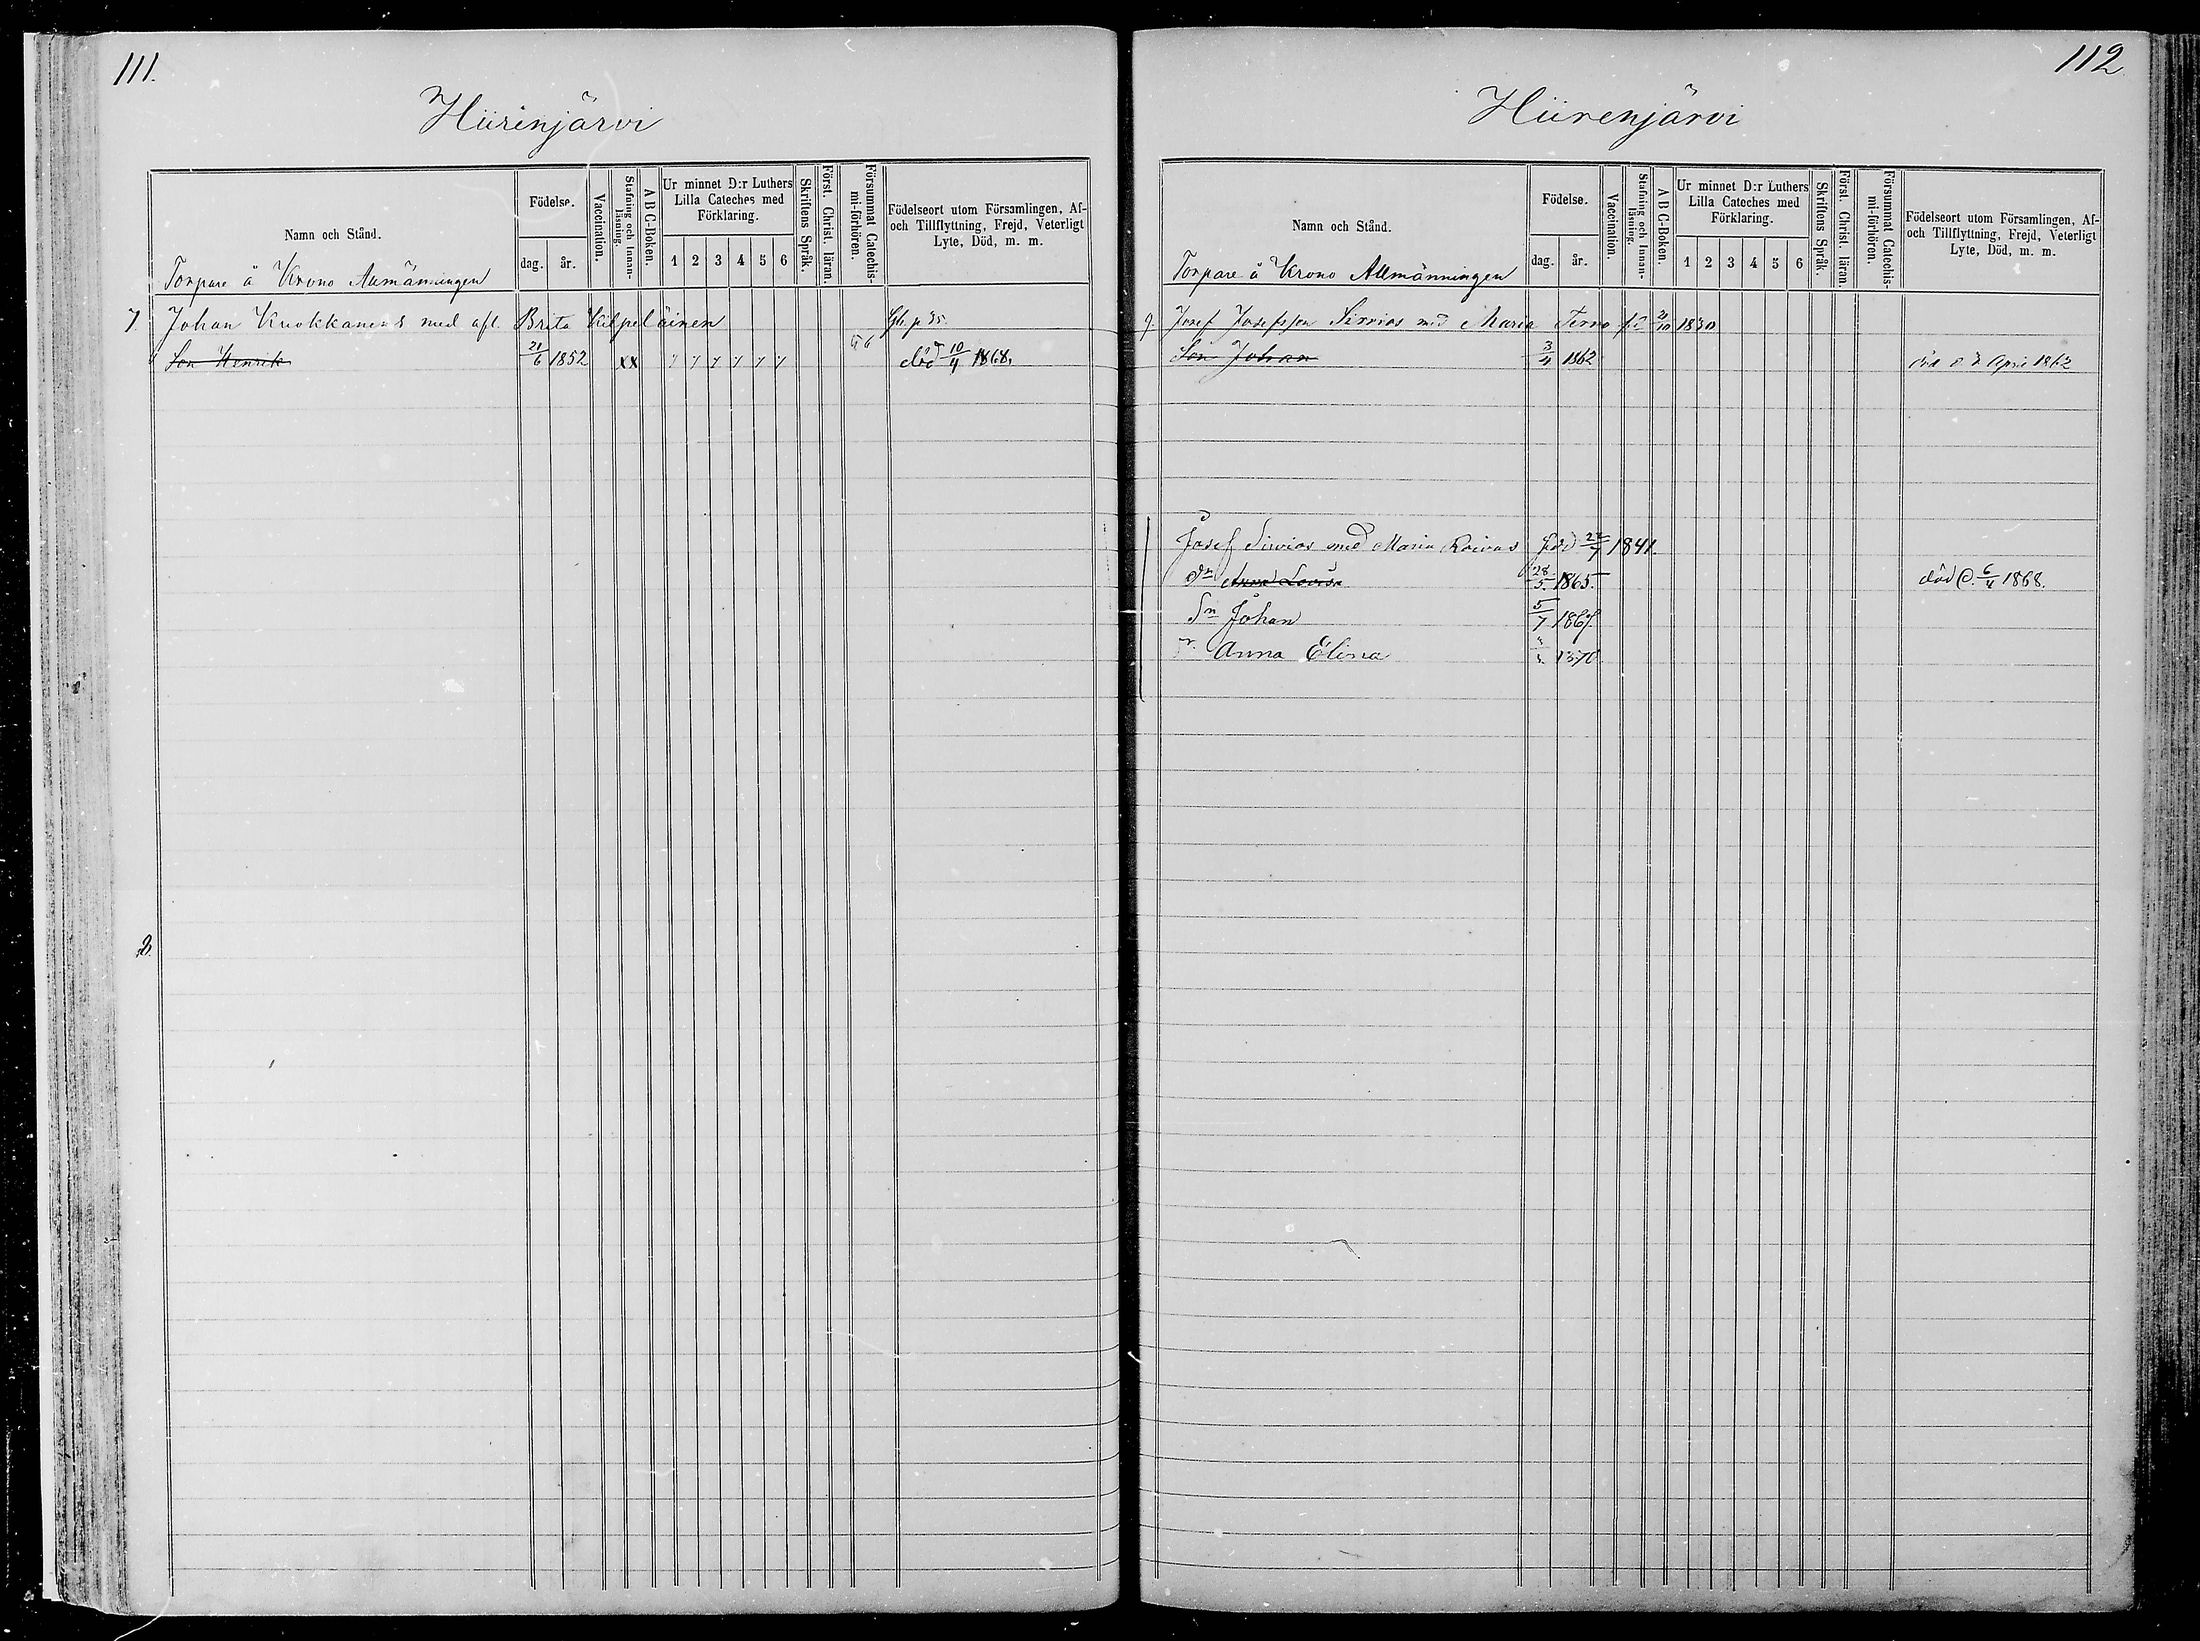 111.
Hiirinjärvi
Namn och Stånd.
Födelse.
dag. år.
Vaccination.
Stafning och Innanläsning.
A B C-Boken.
Ur minnet D:r Luthers Lilla Cateches med Förklaring.
1 2 3 4 5 6
Skriftens Språk.
Först. Christ. läran.
Försummat Catechismi-förhören.
Födelseort utom Församlingen, Af- och Tillflyttning, Frejd, Veterligt Lyte, Död, m. m.
Torpare å Krono Allmänningen
7. Johan Kuokkanens med afl. Brita Kilpeläinen
Son Henrik 21/6 1852 xx död 10/4 1868.
8.
112
Hiirenjärvi
Namn och Stånd.
Födelse.
dag. år.
Vaccination.
Stafning och Innanläsning.
A B C-Boken.
Ur minnet D:r Luthers Lilla Cateches med Förklaring.
1 2 3 4 5 6
Skriftens Språk.
Först. Christ. läran.
Försummat Catechismi-förhören.
Födelseort utom Församlingen, Af- och Tillflyttning, Frejd, Veterligt Lyte, Död, m. m.
Torpare å Krono Allmänningen
9. Josef Josefsson Sirviös med Maria Tervo 1830
Son Johan 3/4 1862 April 1862
Josef Sirviös med Maria Roivas född 1841.
Anna Lovisa 28/5 1865 död d. 6/4 1868.
Sn Johan 5/7 1867.
Anna Elina 1870